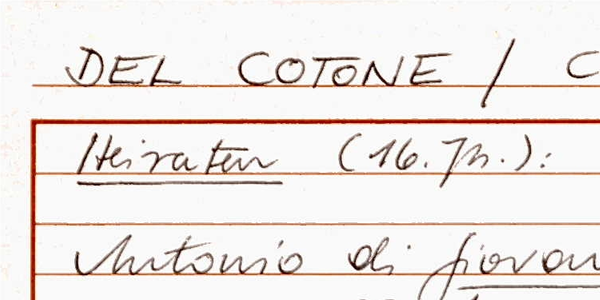 DEL COTONE / C
Heiraten (16. Jh.):
Antonio di Giovan